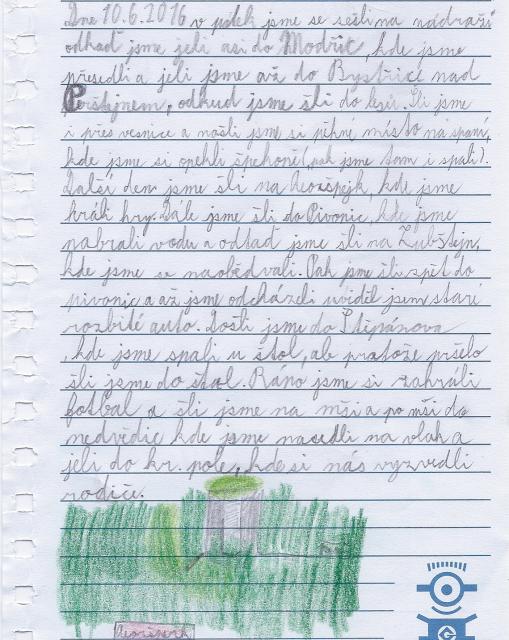 Dne 10.6.2016 v pátek jsme se sešli na nádraží
odkaď jsme jeli asi do Modřic, kde jsme
přesedli a jeli jsme až do Bystřice nad
Perštejnem, odkud jsme šli do lesů. Šli jsme
i přes vesnice a našli jsme si pěkné místo na spaní,
kde jsme si opekli špekoně (pak jsme tam i spali).
Další den jsme šli na Aueršperk, kde jsme
hráli hry. Dále jsme šli do Pivonic, kde jsme
nabrali vodu a odtaď jsme šli na Zubštejn,
kde jsme se naobědvali. Pak jsme šli spět do
pivonic a až jsme odcházeli uviděl jsem staré
rozbité auto. Došli jsme do Štěpánova
, kde jsme spali u štol, ale protože pršelo
šli jsme do štol. Ráno jsme si zahráli
fotbal a šli jsme na mši a po mši do
nedvědic kde jsme nasedli na vlak a
jeli do kr. pole, kde si nás vyzvedli
rodiče.